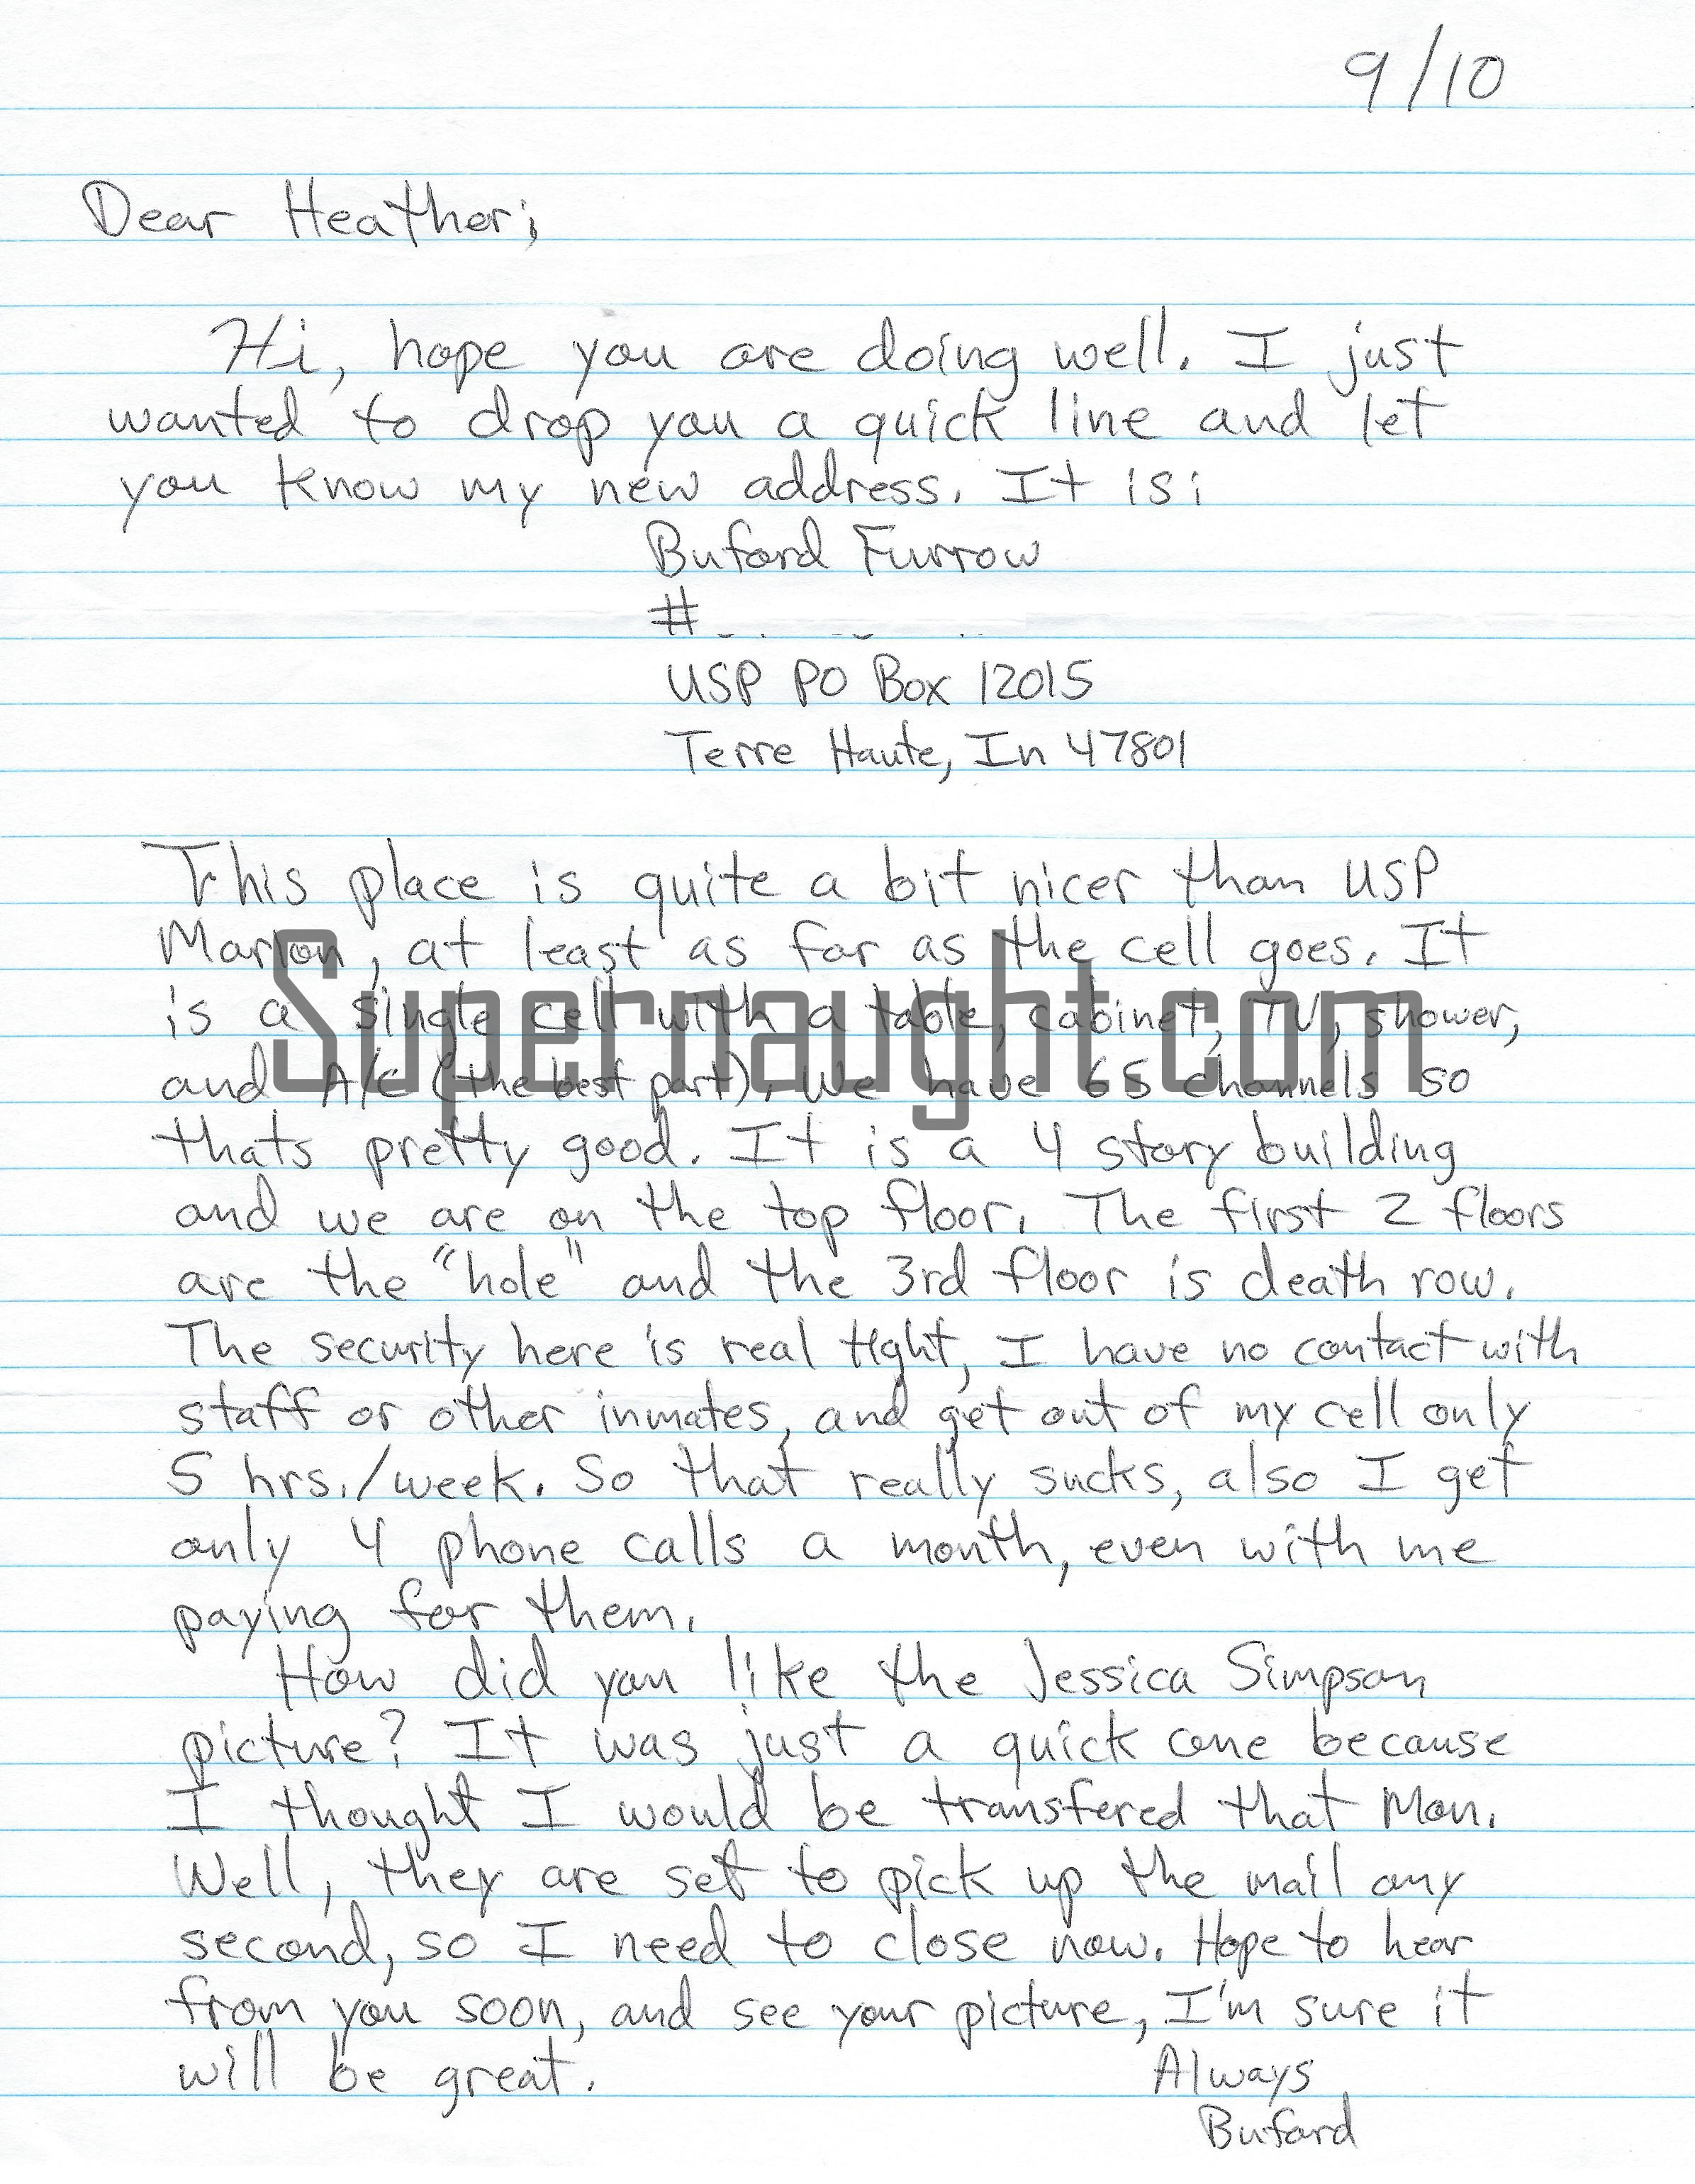 9/10
Dear Heather;
Hi, hope you are doing well. I just
wanted to drop you a quick line and let
you know my new address. It is:
Buford Furrow
#
USP PO Box 12015
Terre Haute, In 47801
This place is quite a bit nicer than USP
Marion, at least as far as the cell goes. It
is a single cell with a table, cabinet, TV, shower,
and A/C (the best part). We have 65 channels so
thats pretty good. It is a 4 story building
and we are on the top floor. The first 2 floors
are the "hole" and the 3rd floor is death row.
The security here is real tight, I have no contact with
staff or other inmates, and get out of my cell only
5 hrs./week. So that really sucks, also I get
only 4 phone calls a month, even with me
paying for them.
How did you like the Jessica Simpson
picture? It was just a quick one because
I thought I would be transfered that Mon.
Well, they are set to pick up the mail any
second, so I need to close now. Hope to hear
from you soon, and see your picture, I'm sure it
will be great.
Always
Buford
Supernaught.com